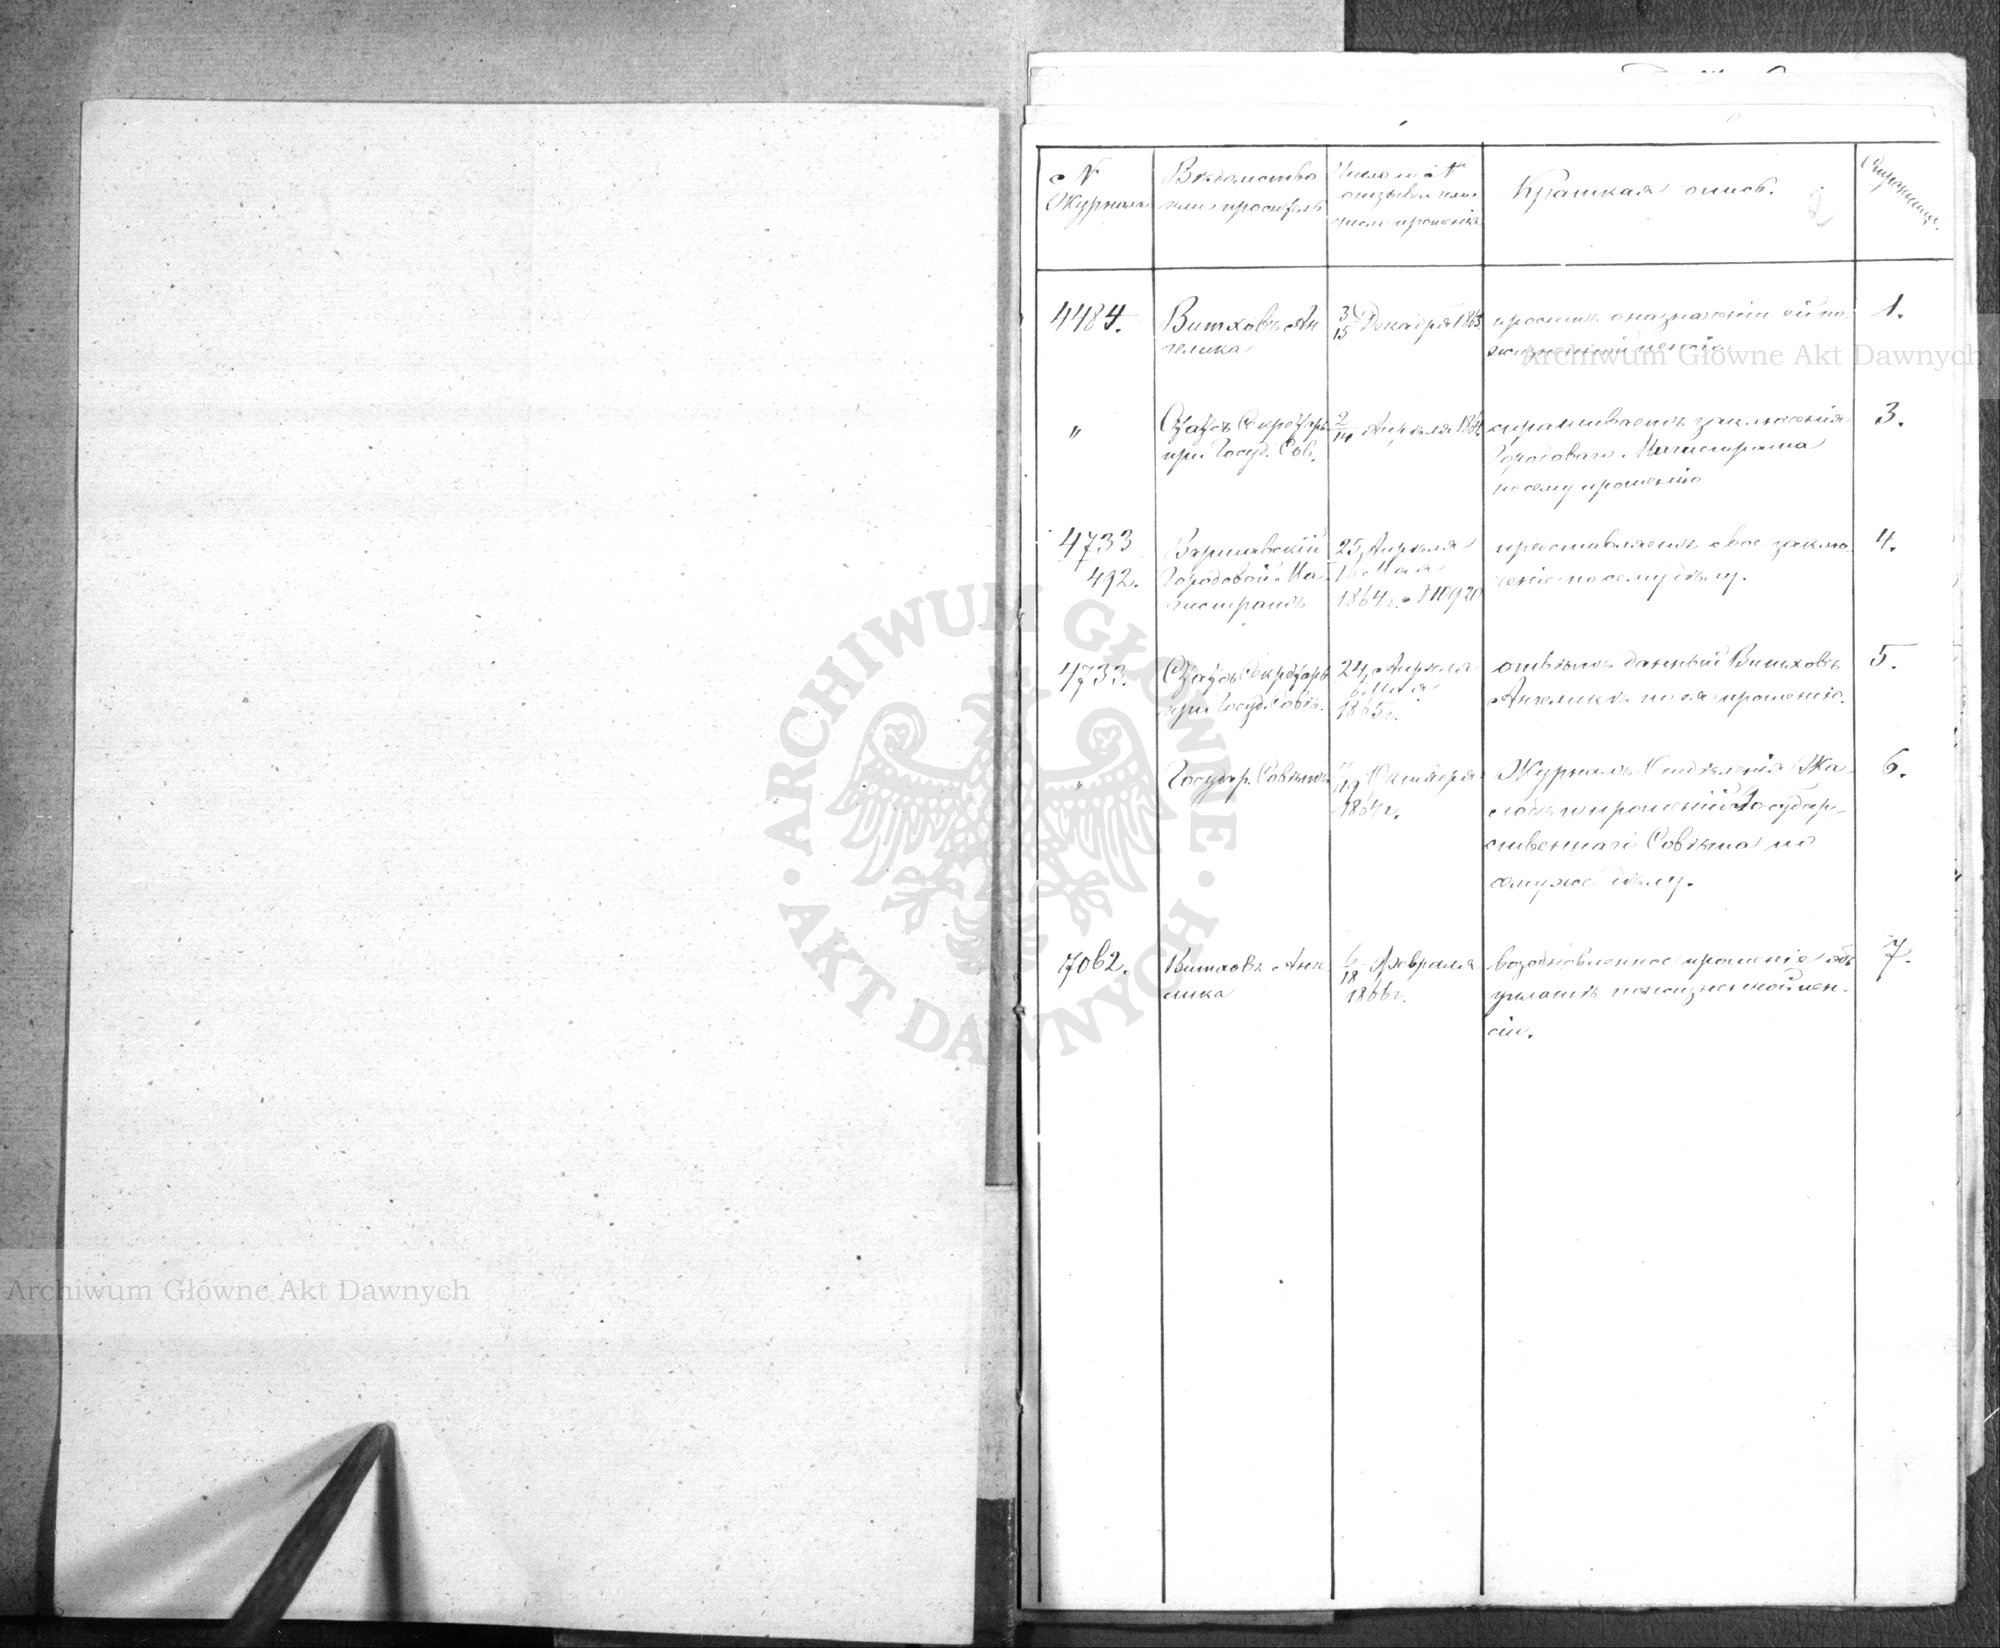 №
Журнала
Вѣдомство
или проситель
Число и №
отзыва или
число прошенія
Краткая опись.
2
Страница.
4484.
Витховъ Ан
гелика
3/15 Декабря 1863
проситъ о назначеніи ей по-
жизненной пенсіи
1.
"
Статсъ Секретарь
при Госуд. Сов.
2/14 Апрѣля 1864.
спрашиваетъ заключенія
Городоваго Магистрата
по сему прошенію
3.
4733
492.
Варшавскій
Городовой Ма
гистратъ
25 Апрѣля
16 Мая
1864 г. № 10920
представляетъ свое заклю-
ченіе по сему дѣлу.
4.
4733.
Статсъ Секретарь
при Госуд. Совѣ.
24 Апрѣля
6 Мая
1865 г.
отвѣтъ данный Витховъ
Ангеликѣ по ея прошенію.
5.
"
Государ. Совѣтъ
/19 Октября
1864 г.
Журналъ Отдѣленія Жа-
лобъ и прошеній Государ-
ственнаго Совѣта по
сему же дѣлу.
6.
7062.
Витховъ Анге
лика
6/18 Февраля
1866 г.
возобновленное прошеніе объ
уплатѣ пожизненной пен-
сіи.
7.
Archiwum Główne Akt Dawnych
ARCHIWUM GŁÓWNE
AKT DAWNYCH
Archiwum Główne Akt Dawnych